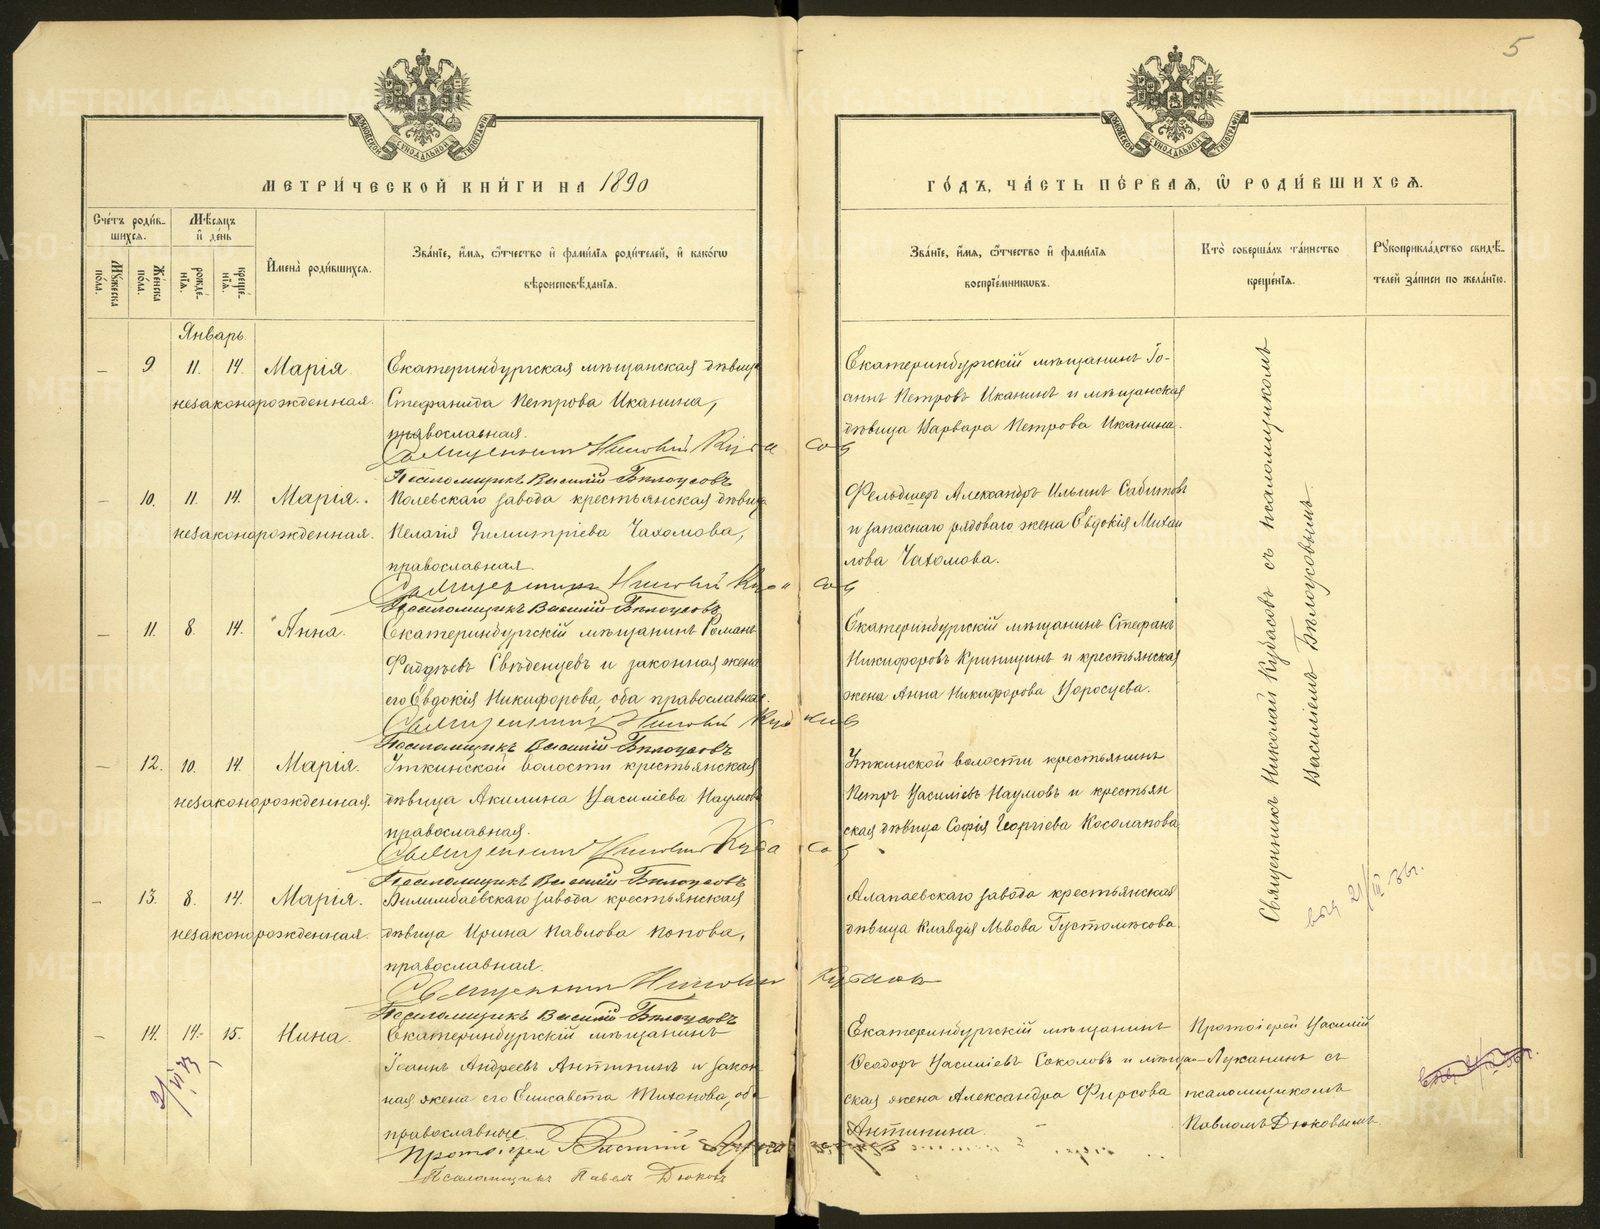 5
МЕТРИ́ЧЕСКОЙ КНИ́ГИ НА 1890
ГО́ДЪ, ЧА́СТЬ ПЕ́РВАЯ, Ѡ РОДИ́ВШИХСЯ.
Сче́тъ роди́в-
шихся.
Му́жеска пола.
Же́нска пола.
Мѣ́сяцъ
и҆ де́нь
рожде́-
нїя.
креще́-
нїя.
И҆мена̀ роди́вшихся.
Зва́нїе, и҆́мя, ѻ҆́тчество и҆ фами́лїя роди́телей, и҆ како́гѡ
вѣроисповѣ́данїя.
Зва́нїе, и҆́мя, ѻ҆́тчество и҆ фами́лїя
воспрїе́мникѡвъ.
Кто̀ соверша́лъ та́инство
креще́нїя.
Рꙋкоприкла́дство свидѣ́-
телей за́писи по жела́нїю.
Январь
– 9 11. 14. Марія.
незаконорожденная.
Екатеринбургская мѣщанская дѣвица
Стефанида Петрова Иканина,
православная.
Священникъ Николай Кубасовъ
Псаломщикъ Василій Бѣлоусовъ
Екатеринбургскій мѣщанинъ Іо-
аннъ Петровъ Иканинъ и мѣщанская
дѣвица Варвара Петрова Иканина.
– 10. 11. 14. Марія.
незаконорожденная.
Полевскаго завода крестьянская дѣвица
Пелагія Димитріева Чахомова,
православная.
Священникъ Николай Кубасовъ
Псаломщикъ Василій Бѣлоусовъ
Фельдшеръ Александръ Ильинъ
и запаснаго рядоваго жена Евдокія Михаи
лова Чахомова.
– 11. 8. 14. Анна.
Екатеринбургскій мѣщанинъ Романъ
Фаддѣевъ и законная жена
его Евдокія Никифорова, оба православные.
Священникъ Николай Кубасовъ
Псаломщикъ Василій Бѣлоусовъ
Екатеринбургскій мѣщанинъ Стефанъ
Никифоровъ и крестьянская
жена Анна Никифорова
– 12. 10. 14. Марія.
незаконорожденная.
Уткинской волости крестьянская
дѣвица Акилина Василіева Наумова
православная.
Священникъ Николай Кубасовъ
Псаломщикъ Василій Бѣлоусовъ
Уткинской волости крестьянинъ
Петръ Василіевъ Наумовъ и крестьян
ская дѣвица Софія Георгіева Косолапова
– 13. 8. 14. Марія.
незаконорожденная.
Билимбаевскаго завода крестьянская
дѣвица Ирина Павлова Попова,
православная.
Священникъ Николай Кубасовъ
Псаломщикъ Василій Бѣлоусовъ
Алапаевскаго завода крестьянская
дѣвица Клавдія Львова Густомѣсова
Священникъ Николай Кубасовъ съ псаломщикомъ
Василіемъ Бѣлоусовымъ.
– 14. 14. 15. Нина.
Екатеринбургскій мѣщанинъ
Іоаннъ Андреевъ Антипинъ и закон
ная жена его Елисавета Тиханова, оба
православные.
Протоіерей Василій
Псаломщикъ Павелъ Дюковъ
Екатеринбургскій мѣщанинъ
Ѳеодоръ Василіевъ Соколовъ и мѣщан-
ская жена Александра Фирсова
Антипина.
Протоіерей Василій
Луканинъ съ
псаломщикомъ
Павломъ Дюковымъ